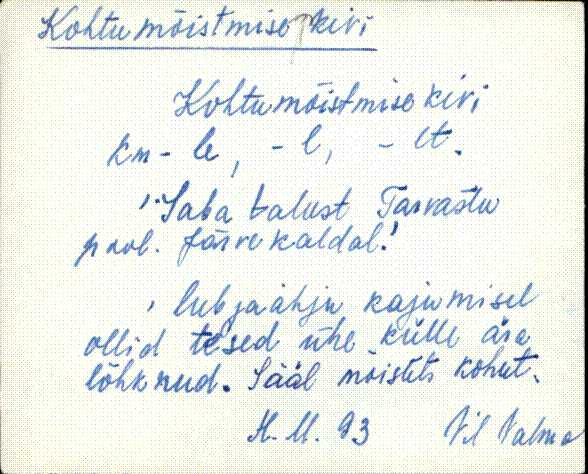 Kohtumõistmise kivi
Kohtumõistmise kivi
km - le, - l, - lt.
'Saba talust Tarvastu
pool. Järve kaldal.'
' lubjaahju kajumisel
ollid tesed ühe külle ära
lõhknud. Sääl mõisteti kohut.
H. M. 93 Vil Valma